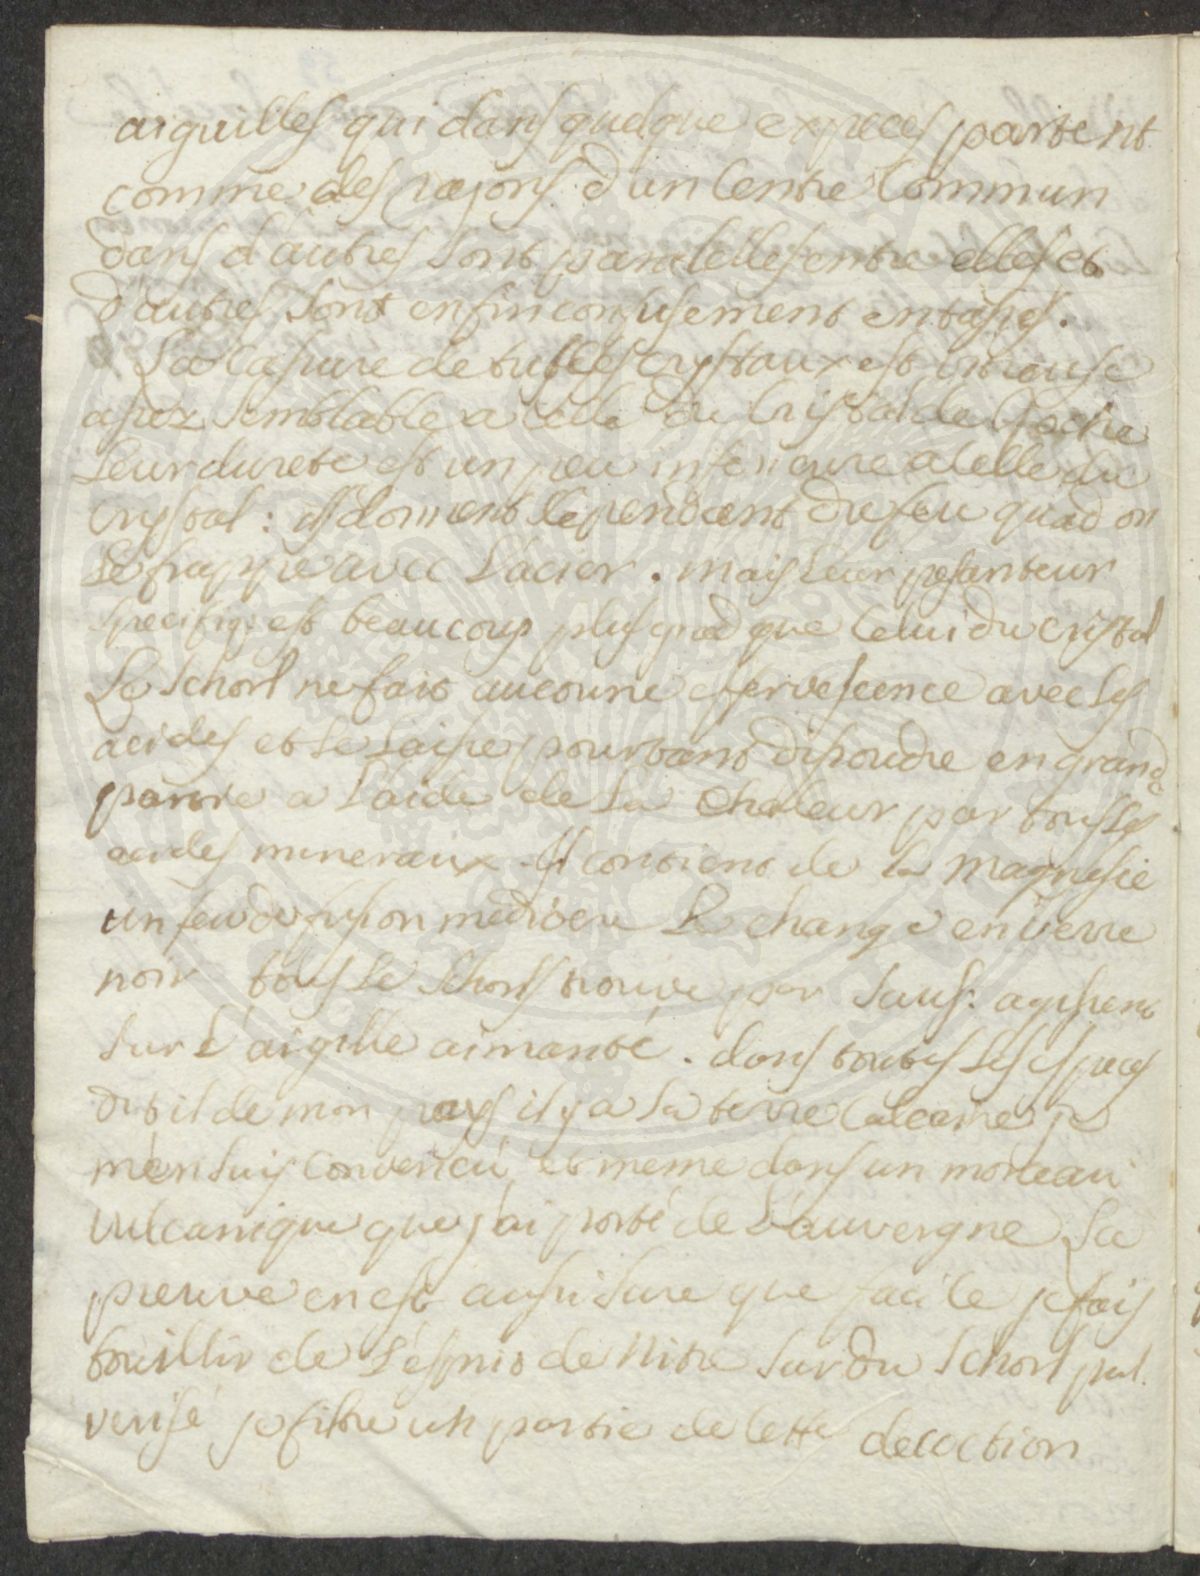 aiguilles qui dans quelque expeces partent
comme des rajons d'un Centre Commun
dans d'autres sont paralelles entre elles et
d'autres sont enfin confusement entasses.
La Casure de tuttes Crystaux est vitreuse
assez semblable a cela du Cristal de Roche
Leur dureté est un peu inferieure a celle du
Crystal: ils donnent cependant du feu quad on
Le frappe avec L'acier. mais Leur pesanteur
specifiq. est beaucoup plus grād que Celui du cristal
Le Schorl ne fait aucoune effervescence avec Les
acides et se Laisse pourtant dissoudre en grande
partie a L'aide de La Chaleur par tous Les
acides mineraux Il contient de la Magnesie
un feu de fusion mediocre Le change en verre
noir tous Le Schorls trouve par Saus: agissent
sur L'aigille aimanté. dans toutes Les especes
dit il de mon pays il y a La terre Calcaire je
m'en suis Convencu, et meme dans un morceau
vulcanique que j'ai porté de L'auvergne La
preuve en est aussi sure que facile je fais
bouillir de L'esprit de Nitre sur du Schorl pul.
verisé je filtre un partie de Cette decoction